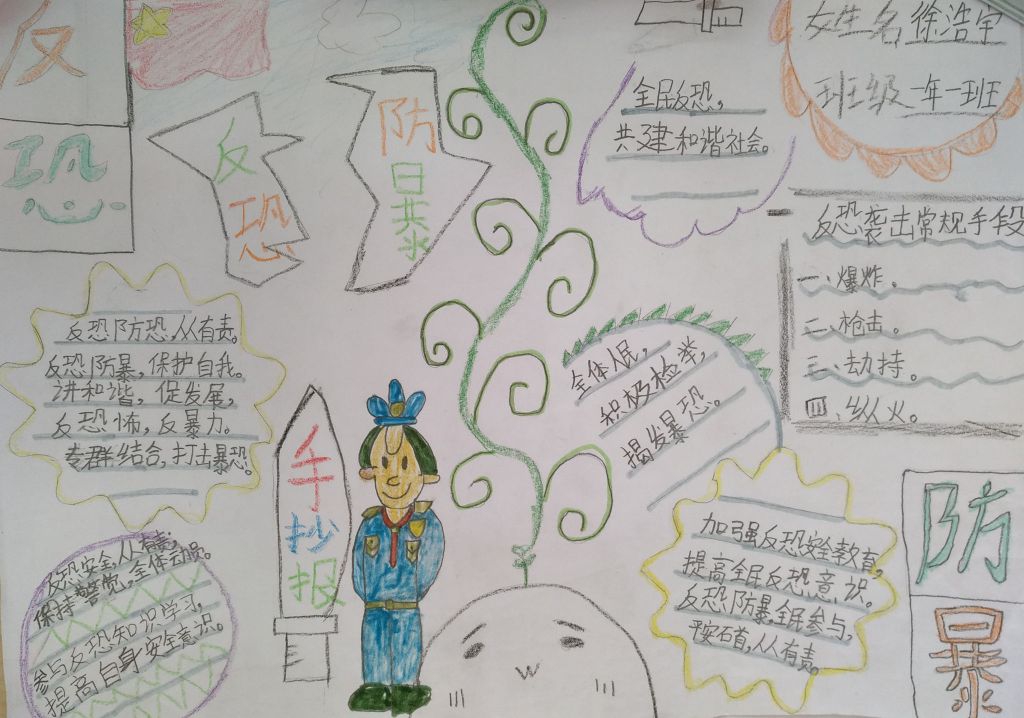 反
恐
反
恐
防
暴
女生名徐浩宇
班级一年一班
全民反恐，
共建和谐社会。
反恐袭击常规手段
一、爆炸。
二、枪击。
三、劫持。
四、纵火。
反恐防恐，从有责。
反恐防暴，保护自我。
讲和谐，促发展，
反恐怖，反暴力。
专群结合，打击暴恐！
全体人民，
积极检举，
揭发暴恐。
手
抄
报
反恐安全，从有责；
保持警觉，全体动员。
参与反恐知识学习，
提高自身安全意识。
加强反恐安全教育，
提高全民反恐意识。
反恐防暴，全民参与，
平安石首，从有责。
防
暴